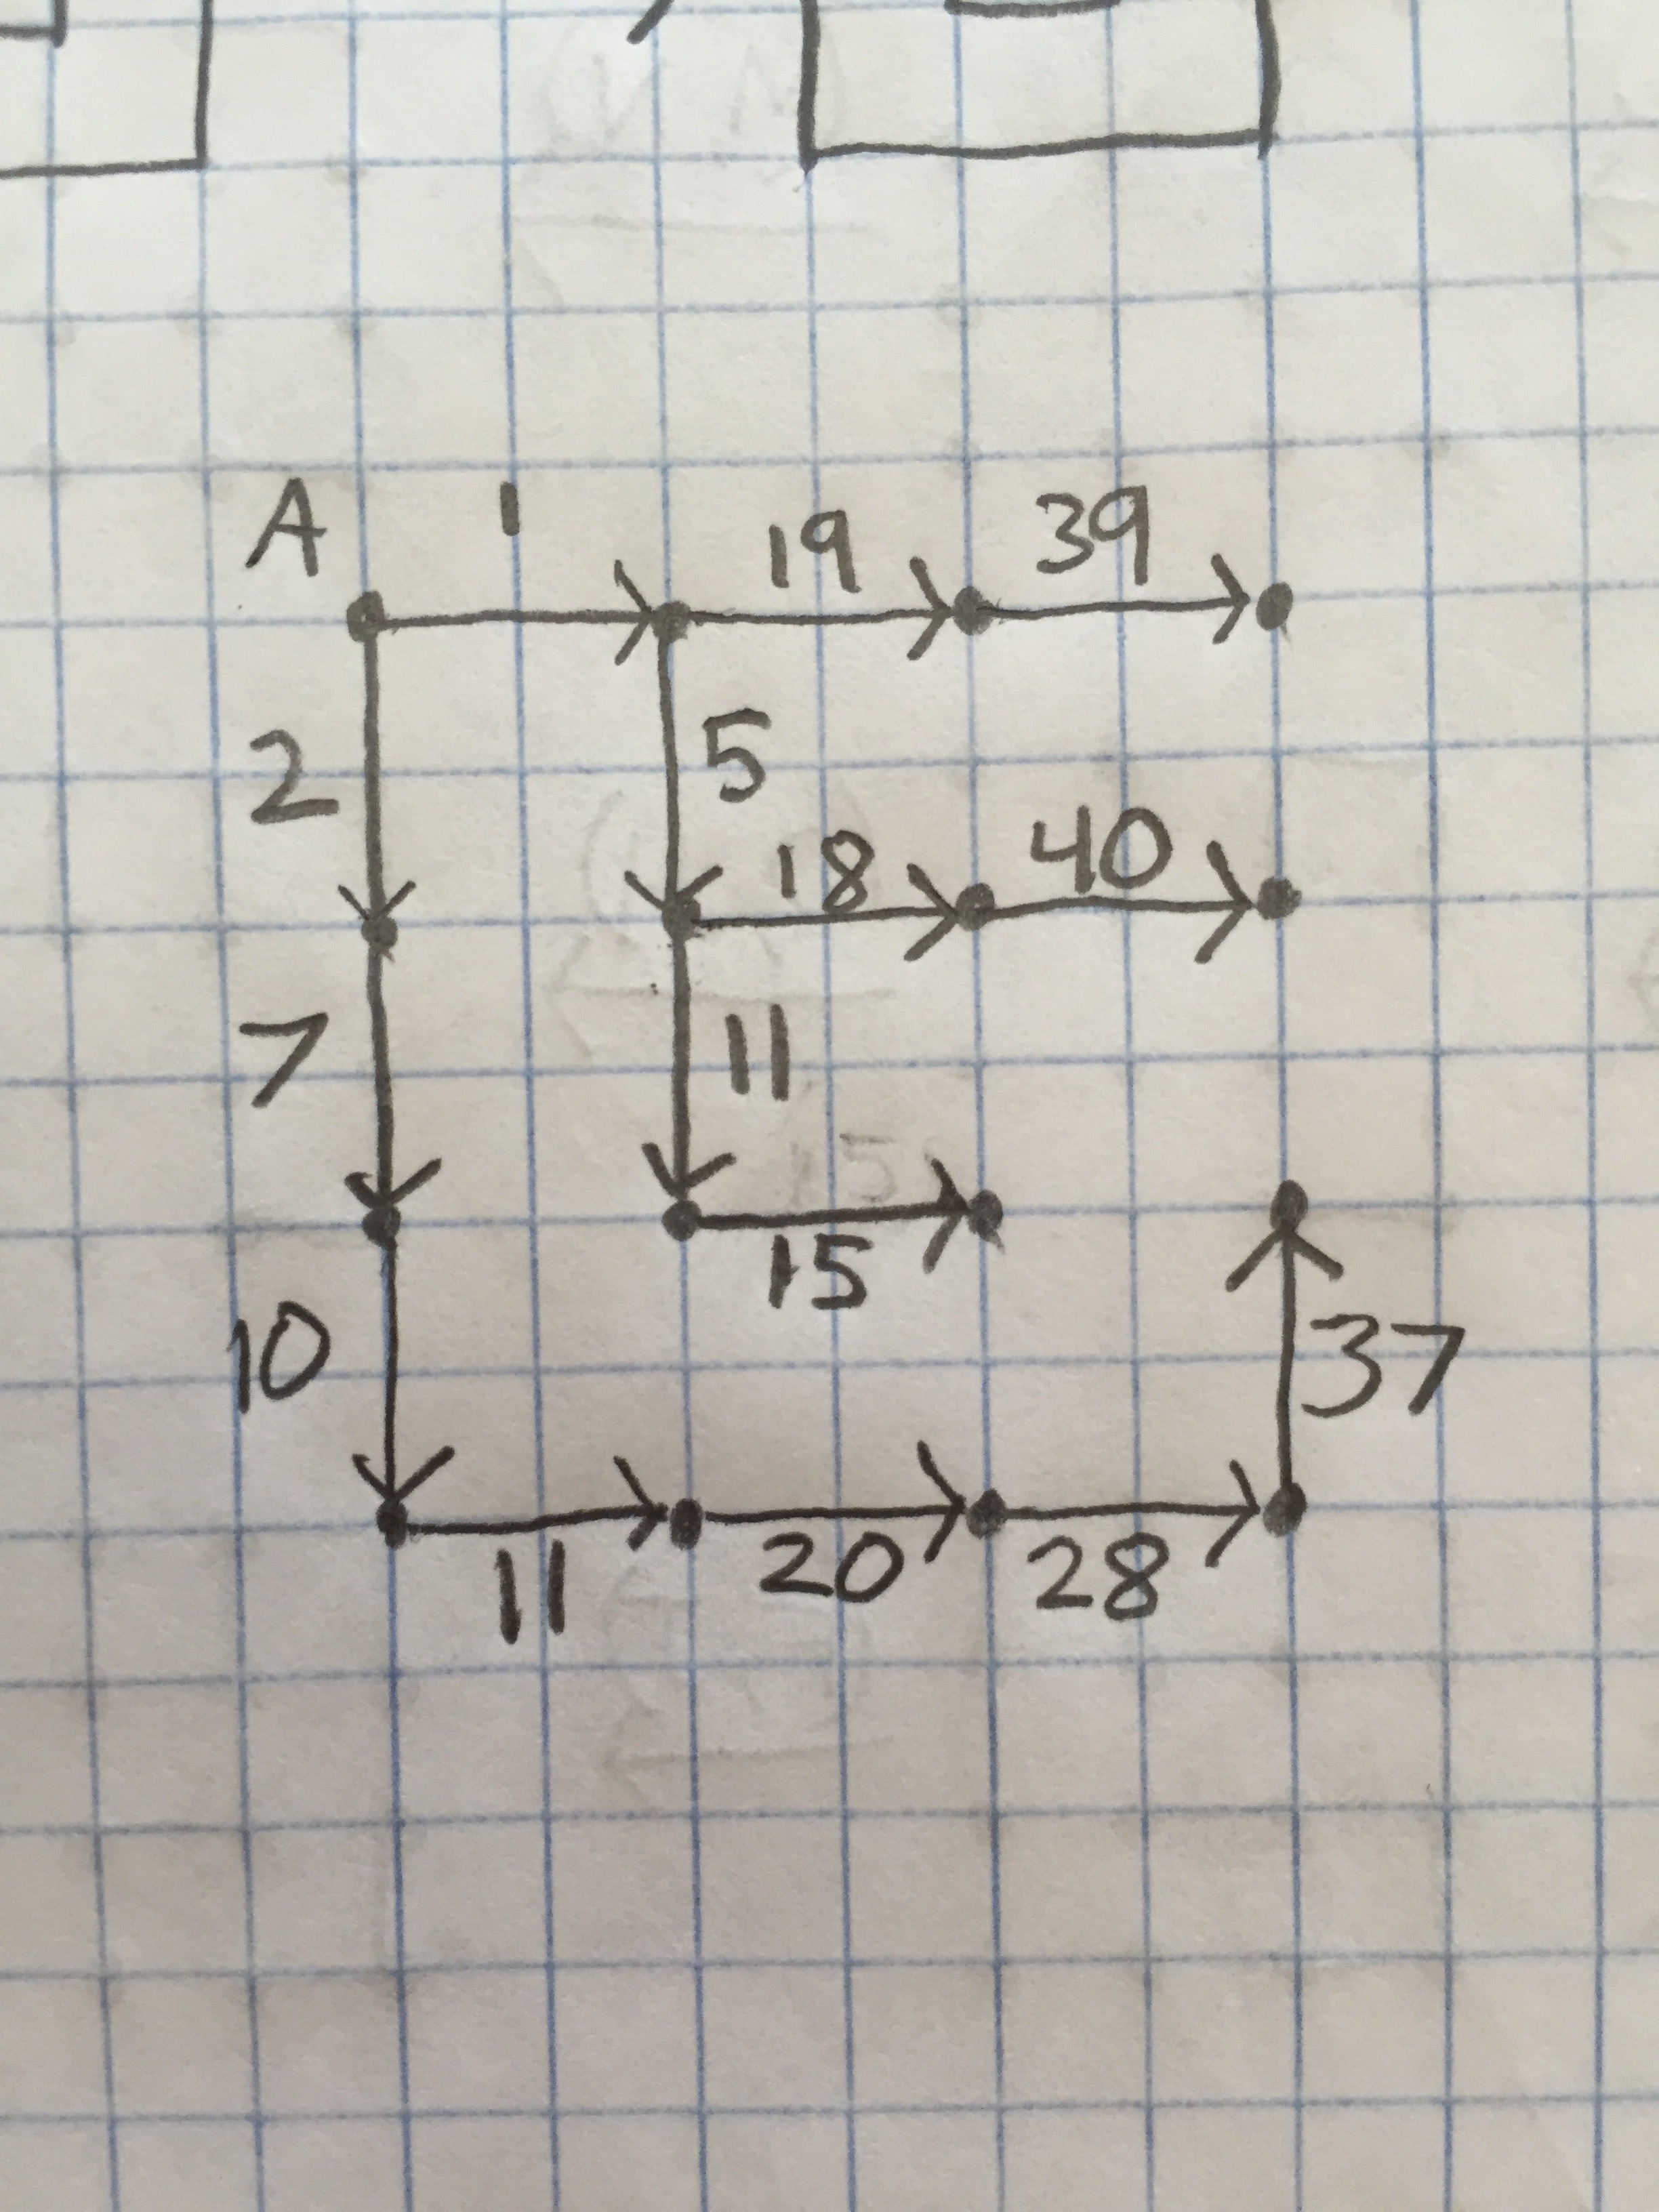 A 1 19 39
2 5
18 40
7 11
15
10 37
11 20 28